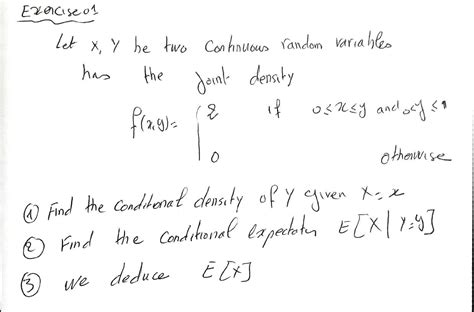 Exercise 01
Let X, Y be two Continuous random variables
has the joint density
f(x,y) = { 2 if 0 ≤ x ≤ y and 0 < y ≤ 1
0 otherwise
① Find the conditional density of Y given X = x
② Find the conditional expectation E[X | Y=y]
③ we deduce E[X]